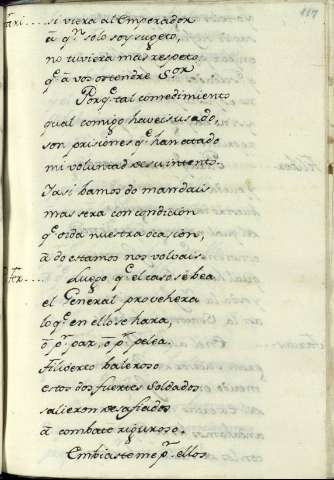 117
Fri.... si viera al Emperador
â q.n solo soy sugeto,
no tuviera mas respeto
q.e â vos ostendre S.or
Porq.e tal comedimiento
qual comigo haveis usado,
son prisiones q.e han atado
mi voluntad de su intento.
Y asi bamos do mandais
mas sera con condicion
q.e oida nuestra ocasion,
â do estamos nos volvais.
Fr.... Luego q.e el caso se bea
el General proveherá
lo q.e en ello se hara,
ô p.r paz, ô p.r pelea.
Filiberto baleroso
estos dos fuertes Soldados
salieron desafiados
â combate riguroso.
Embiasteme p.r ellos